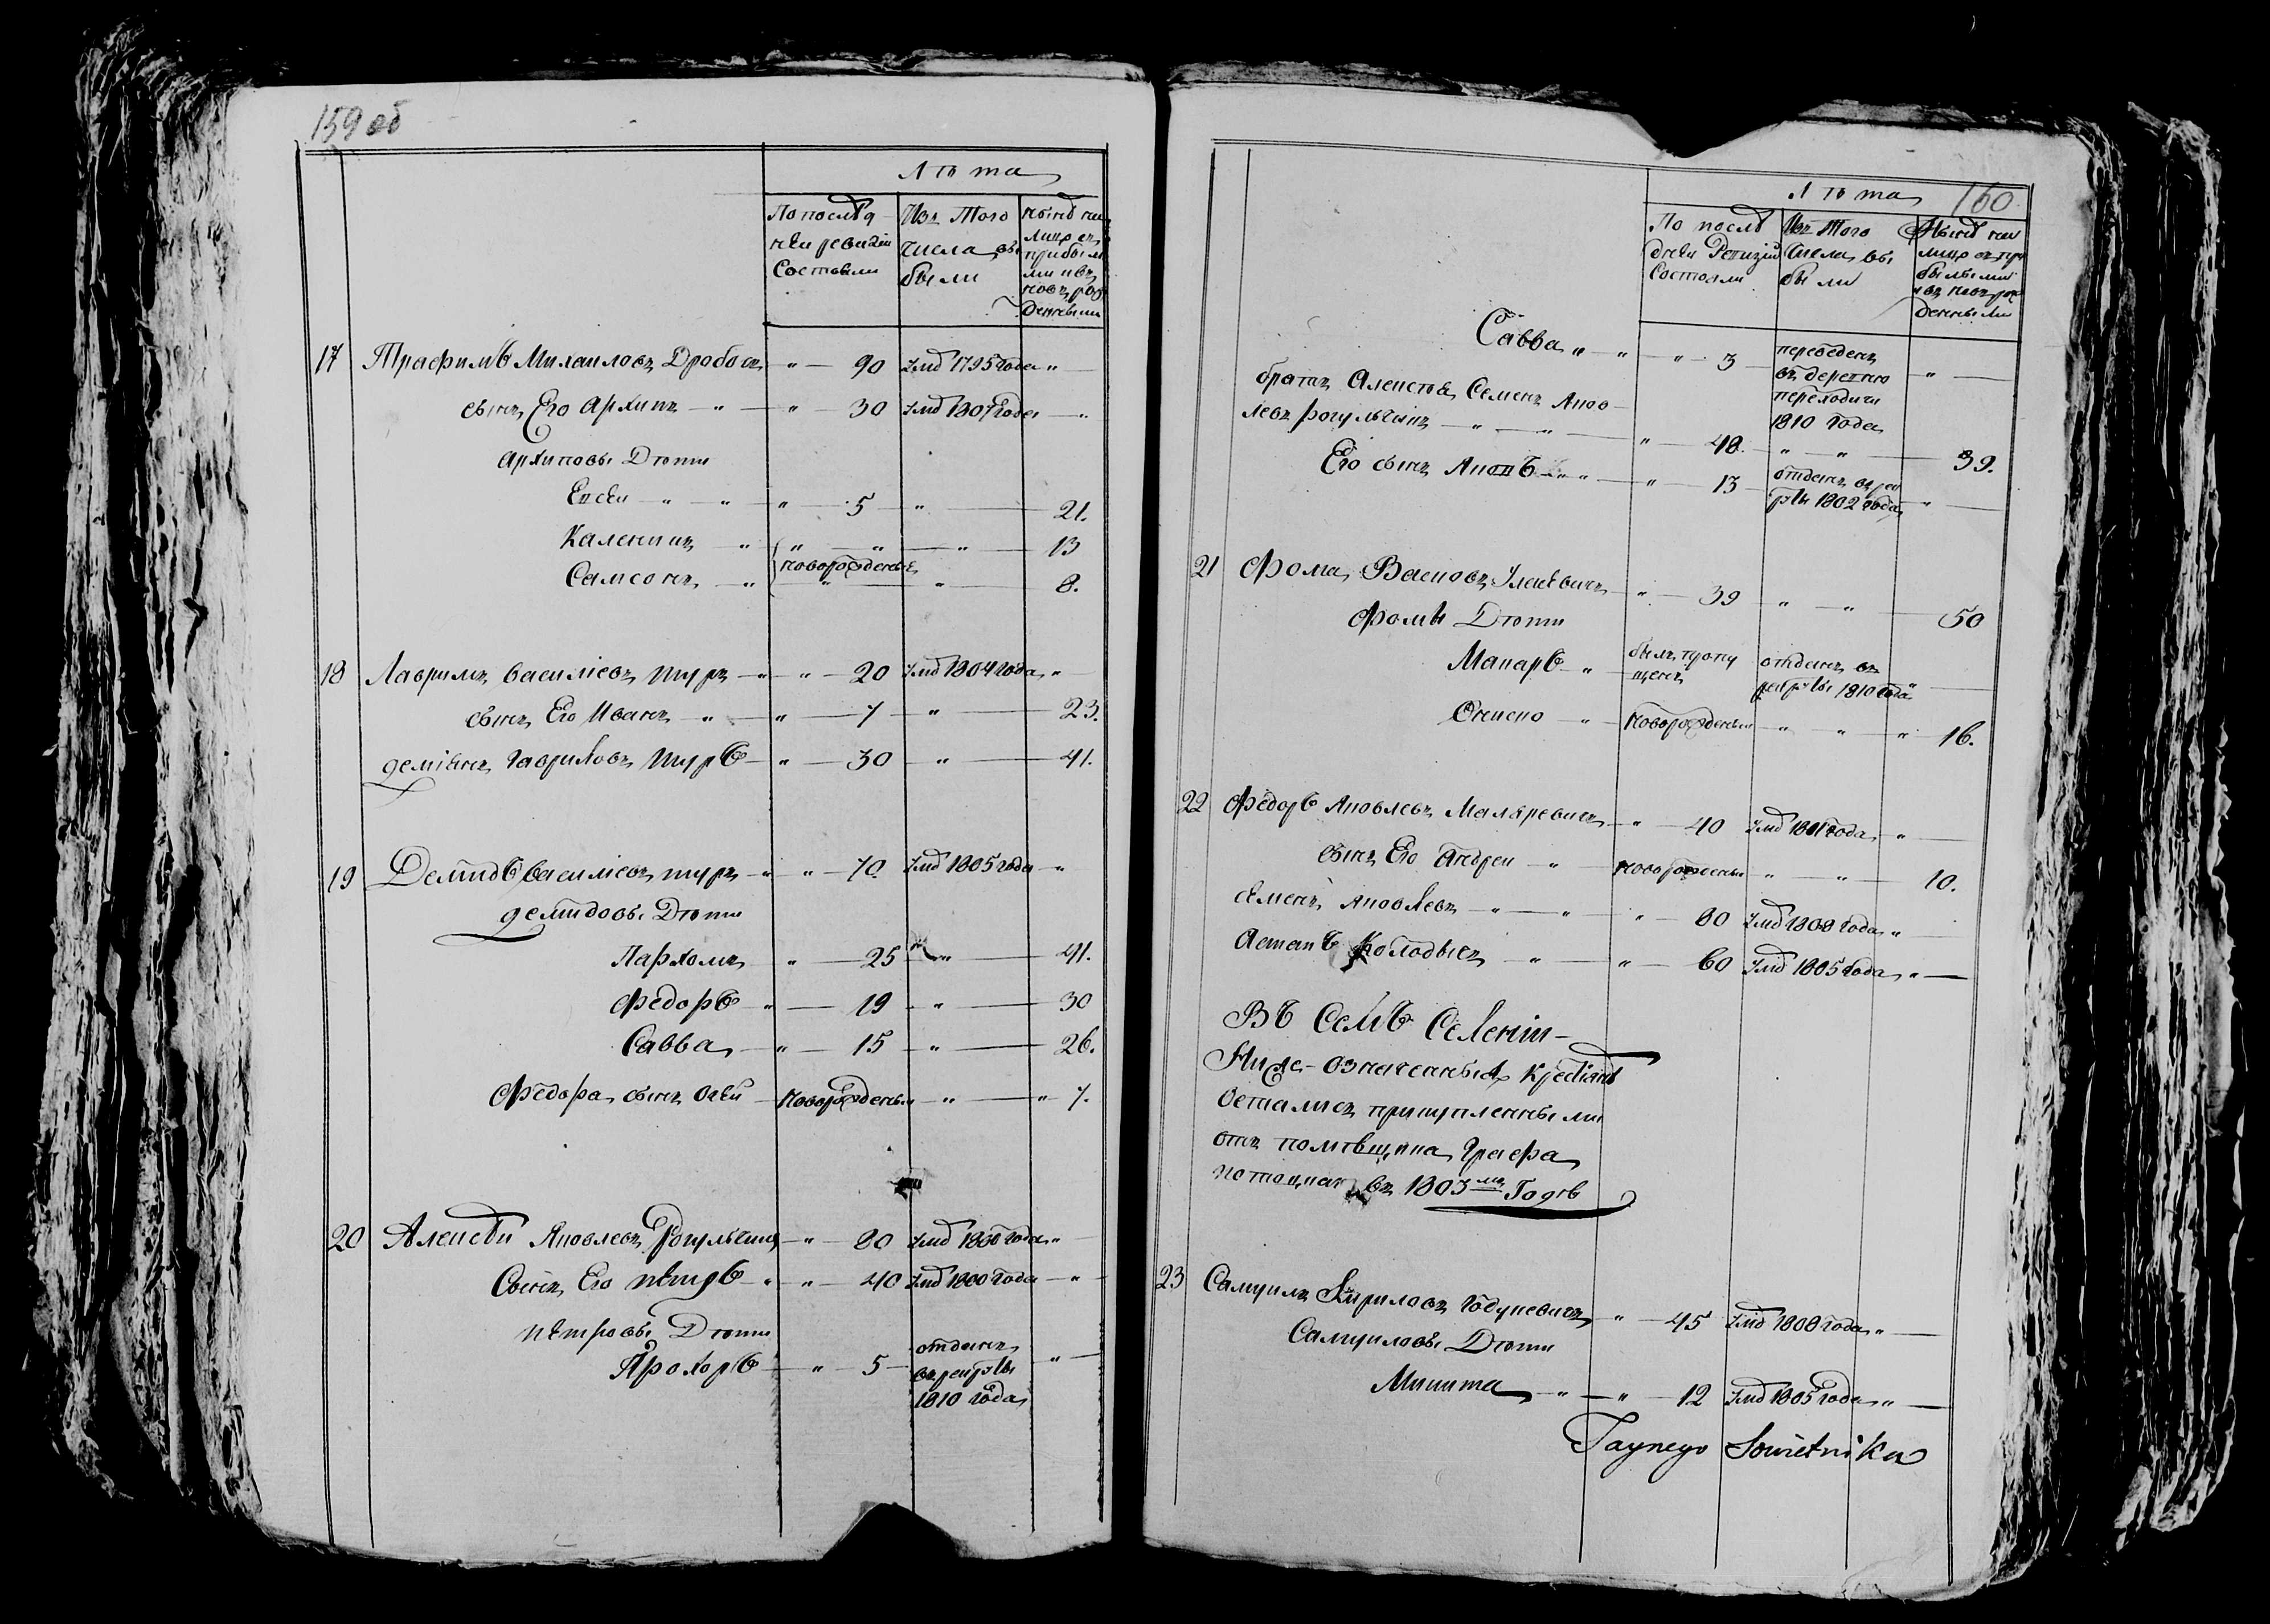 159 об
Лѣта
По послѣд- Изъ Того нынѣ на
ней ревизіи числа вы лицо съ
Состояли были прибыл
ми и въ
новъ рож
денными
17 Трафимъ Михаиловъ Дробось " — 90 Умѣ 1795 года "
сынъ Его Архипъ " — " 30 Умѣ 1807 Года — "
Архиповы Дѣти
Евсѣй " — " " 5 " — 21.
Каленикъ " " " " 13
новорожденые
Самсонъ " " " 8.
18 Лавримъ васильевъ шуръ " — 20 Умѣ 1804 года "
сынъ Его Иванъ " — " 7 " — 23.
демьянъ Гавриловъ шуръ — " 30 " — 41.
19 Демидъ василіевъ шуръ " — 70. Умѣ 1805 года "
демидовы Дѣти
Пархомъ " — 25 " — 41.
Федоръ " — 19 " — 30
Савва " — 15 " — 26.
Федора сынъ Овсѣй новорожденый " — " 7.
20 Алексѣй Яковлевъ Рогульчикъ " — 80 Умѣ 1800 года "
Сынъ Его пѣтръ " — " 40 Умѣ 1800 года — "
пѣтровы Дѣти
Прохоръ — " 5 — отданъ
въ рекруты "
1810 года
160
Лѣта
По послѣ Изъ Того Нынѣ на
дней Ревизіи Числа вы лицо съ при
Состояли были былыми
и въ новъ рож
денными
Савва " — " " 3 переведенъ
въ деревню "
переходичи
1810 года
братъ Алексѣя Семенъ Яков-
левъ рогульчикъ — " — " " 48. " — " 39.
Его сынъ Яковъ " " " 13 отданъ в рек
руты 1802 года "
21 Фома Васковъ Уласевичъ " 39 " — " 50
Фомы Дѣти
Макаръ " былъ пропу отданъ въ
щенъ рекруты 1810 года "
Оникѣо " новорожденый " " " 16.
22 Федоръ Яковлевъ Маляревичъ " 40 Умѣ 1801 года "
сынъ Его Андрей " новорожденый " — " 10.
семенъ Яковлевъ " — " " 80 Умѣ 1808 года "
Астапъ Колодысъ " — " 60 Умѣ 1805 года "
Въ Селѣ Селеніи
Ниже-означенныхъ крестіанъ
Остались прикупленными
отъ помѣщика Графа
потоцкаго въ 1803мъ Годѣ
23 Самуилъ Кириловъ Годуневичъ " 45 Умѣ 1808 года "
Самуиловы Дѣти
Микита " — " 12 Умѣ 1805 года "
Taynego Sowietnika